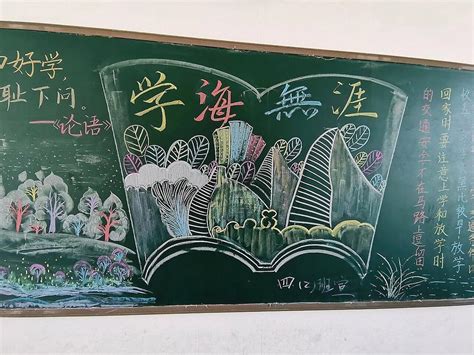 好学，
耻下问。
—《论语》
学海無涯
四(2)班宣
比较早，放学
回家时要注意上学和放学时
的交通安全，不在马路上逗留